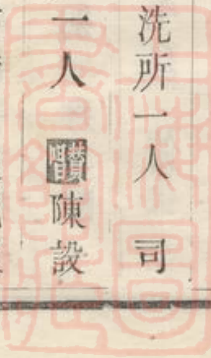 洗所一人 司
一人 贊唱 陳設